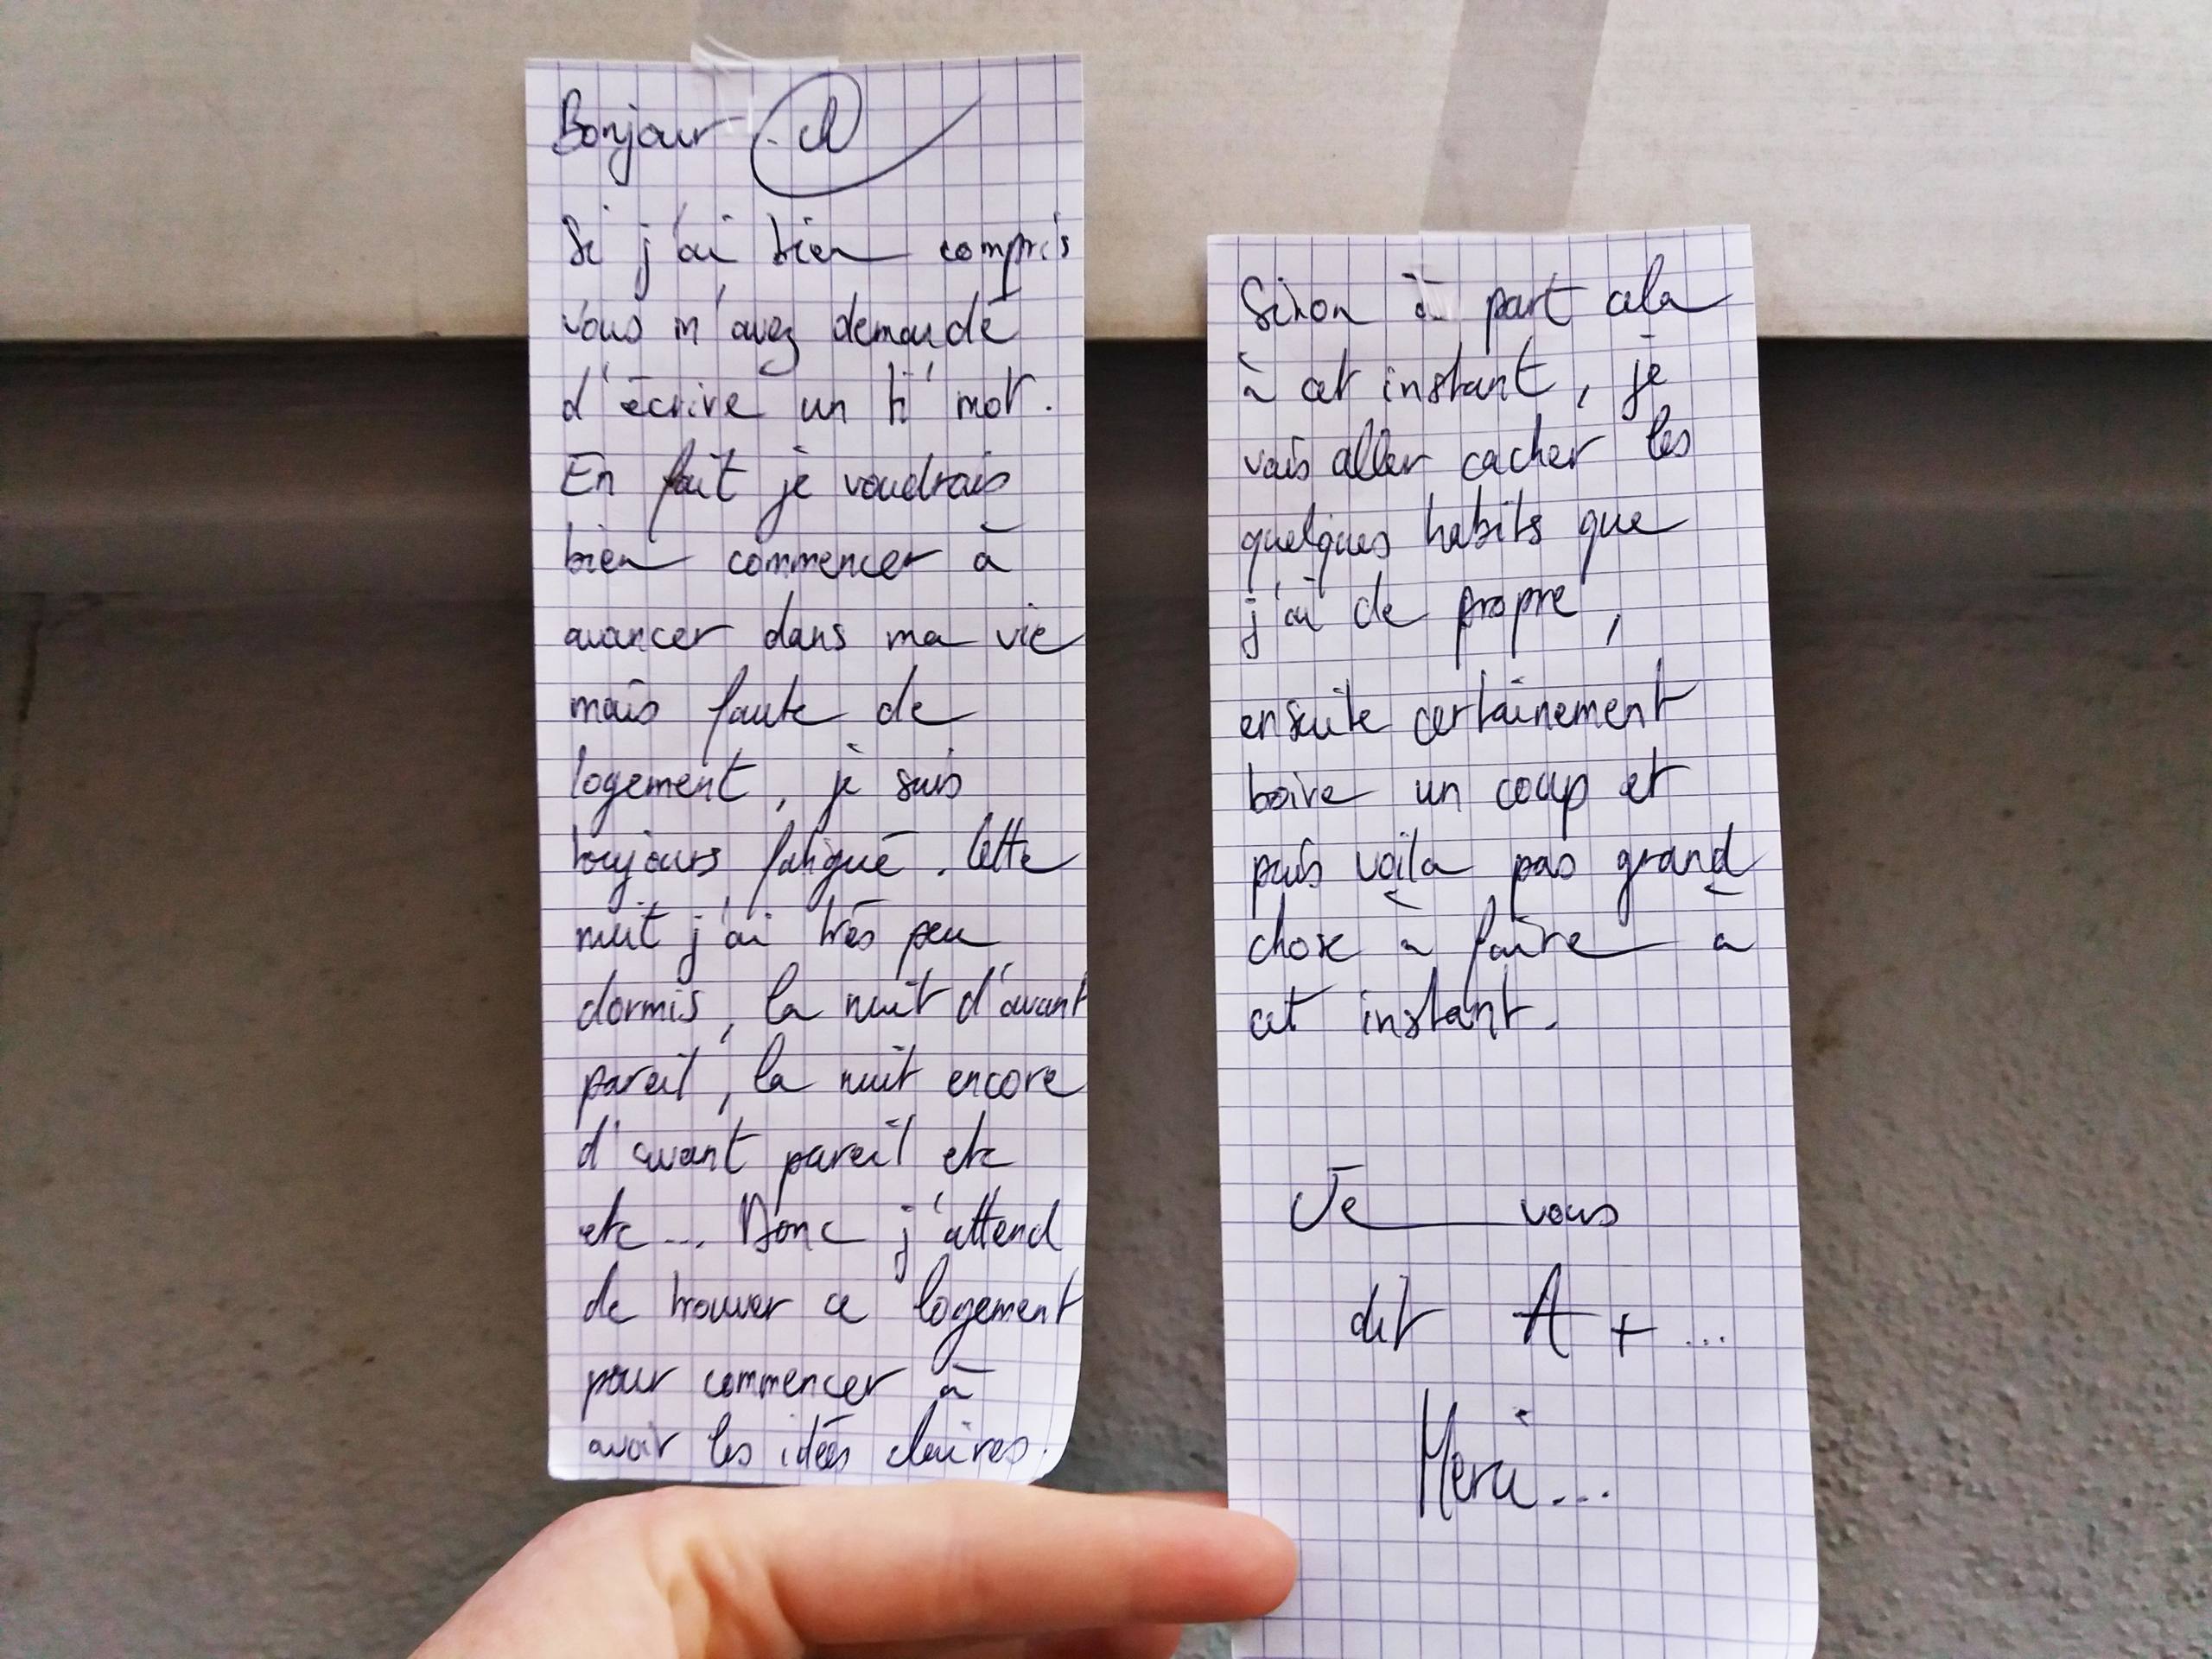 Bonjour
Si j'ai bien compris
vous m'avez demandé
d'écrire un ti' mot.
En fait je voudrais
bien commencer à
avancer dans ma vie
mais faute de
logement, je suis
toujours fatigué. Cette
nuit j'ai très peu
dormis, la nuit d'avant
pareil, la nuit encore
d'avant pareil etc
etc... Donc j'attend
de trouver ce logement
pour commencer à
avoir les idées claires.
Sinon à part cela
à cet instant, je
vais aller cacher les
quelques habits que
j'ai de propre,
ensuite certainement
boire un coup et
puis voila pas grand
chose à faire à
cet instant.
Je vous
dit A+...
Merci...